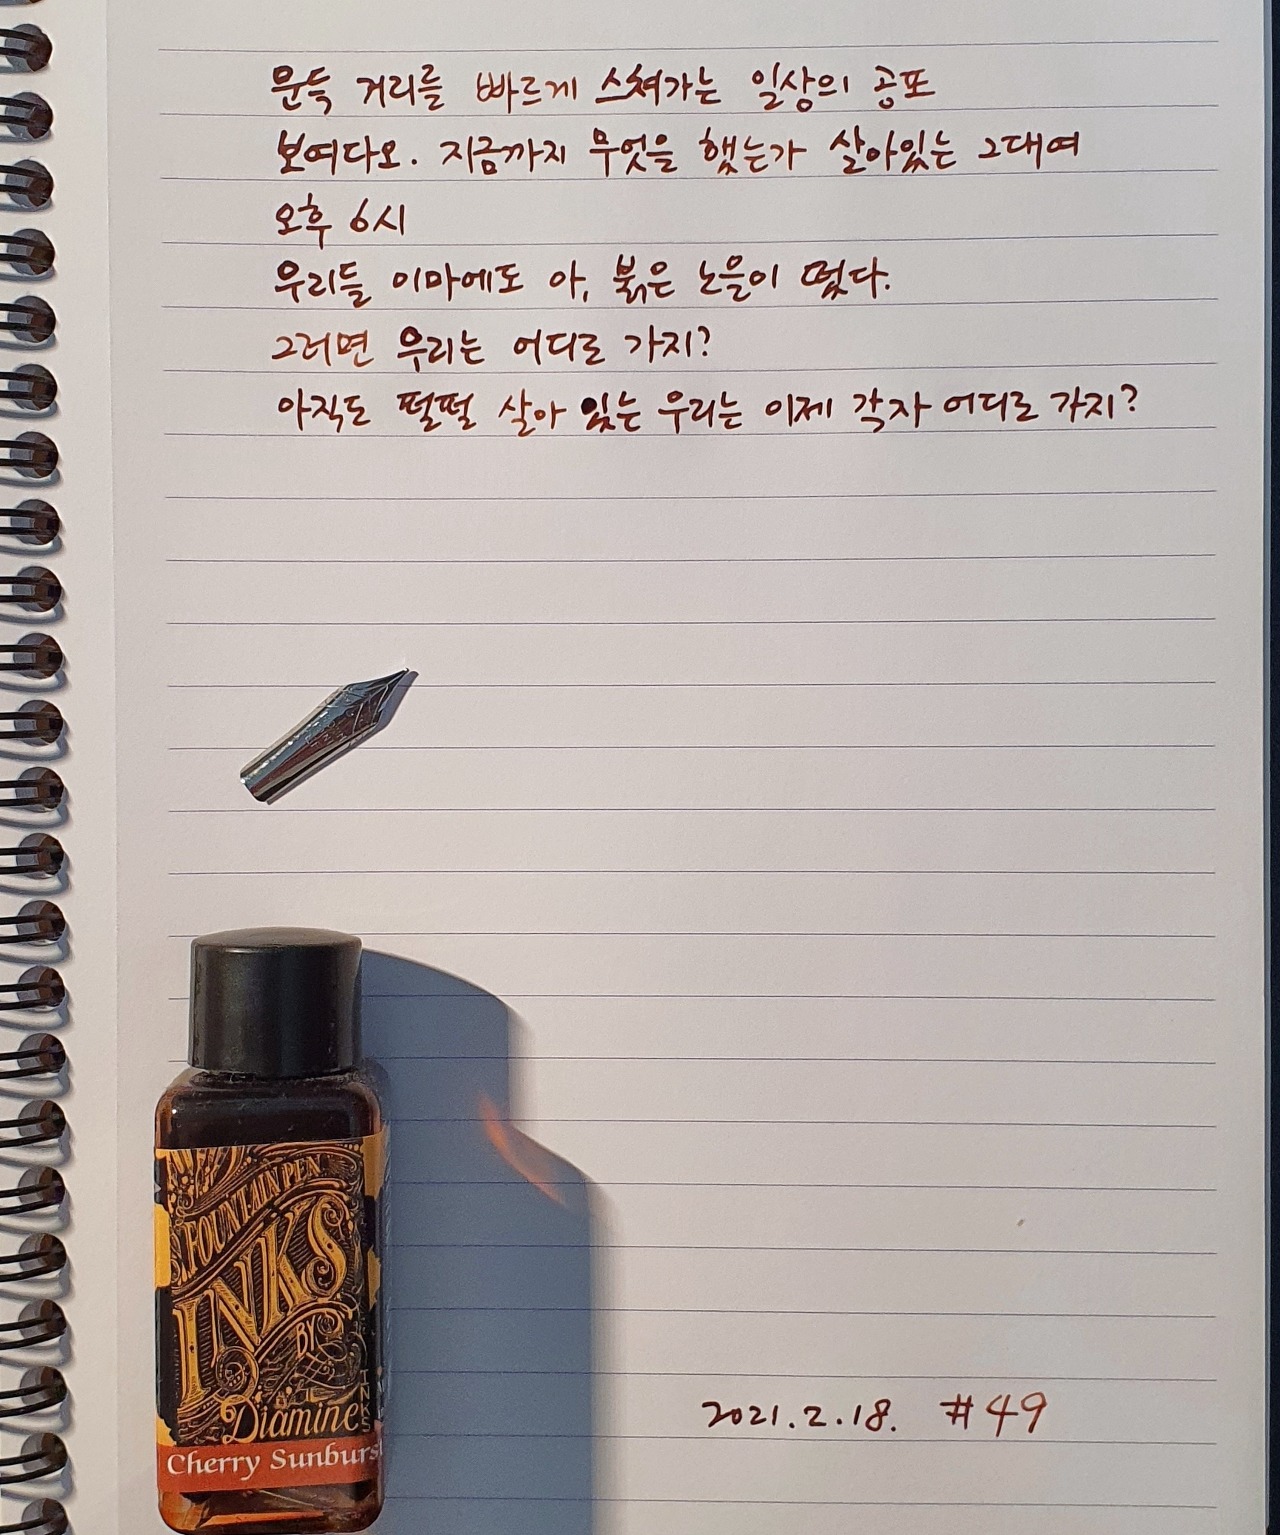 문득 거리를 빠르게 스쳐가는 일상의 공포
보여다오. 지금까지 무엇을 했는가 살아있는 그대여
오후 6시
우리들 이마에도 아, 붉은 노을이 떴다.
그러면 우리는 어디로 가지?
아직도 펄펄 살아 있는 우리는 이제 각자 어디로 가지?
FOUNTAIN PEN
INKS
BY
Diamine
INKS
Cherry Sunburst
2021.2.18. #49